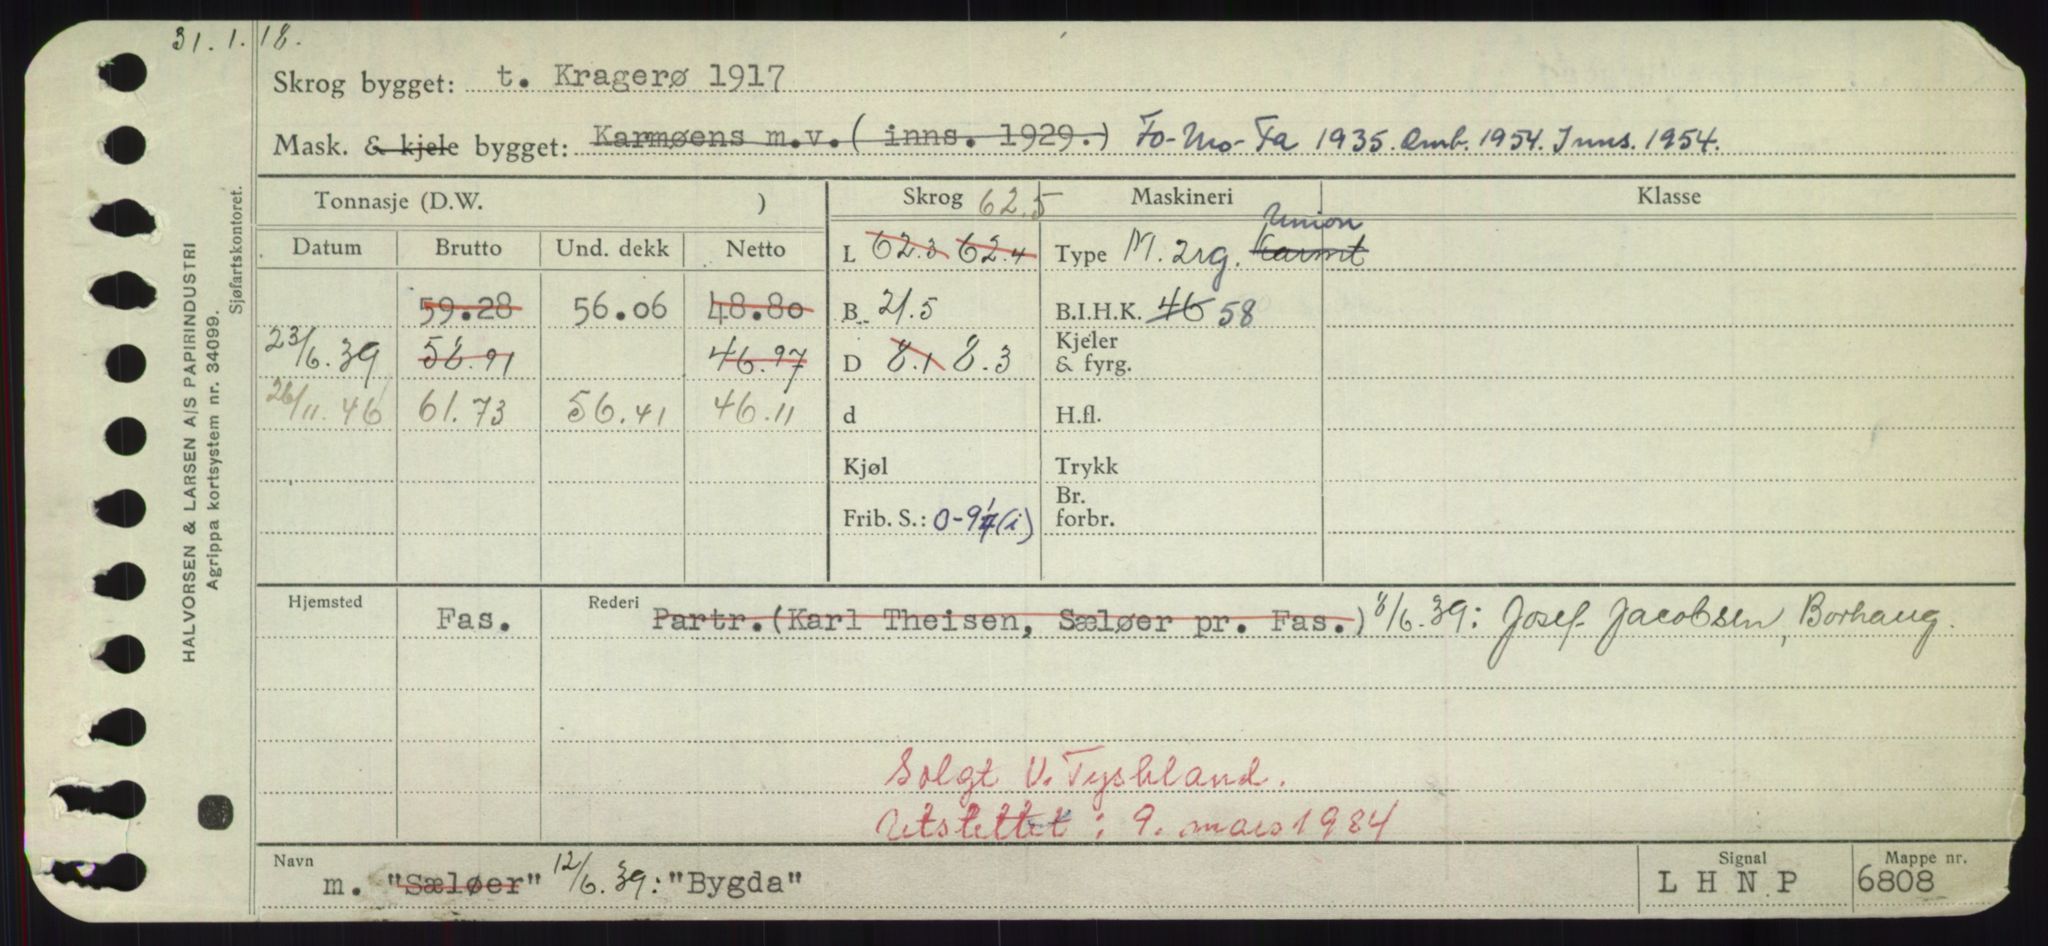 31.1.18.
Skrog bygget: t. Kragerø 1917
Mask. & kjele bygget: Karmøens m.v. ( inns. 1929.) Fo-Mo-Fa 1935. Omb. 1954. Inns. 1954.
Tonnasje (D.W. ) Skrog 62.5 Maskineri Klasse
Datum Brutto Und. dekk Netto L 62.3 62.4 Type M. 2rg. Karmt Union
59.28 56.06 48.80 B 21.5 B.I.H.K. 46 58
23/6.39 58.91 46.97 D 8.1 8.3 Kjeler & fyrg.
26/11.46 61.73 56.41 46.11 d H.fl.
Kjøl Trykk
Frib. S.: 0-9 (i) Br. forbr.
Hjemsted Fas. Rederi Partr.(Karl Theisen, Sæløer pr. Fas.) 8/6.39: Josef Jacobsen, Borhaug.
Solgt V. Tyskland.
Utslettet: 9. mars 1984
Navn m. "Sæløer" 12/6.39: "Bygda" Signal L H N P Mappe nr. 6808
HALVORSEN & LARSEN A/S PAPIRINDUSTRI
Agrippa kortsystem nr. 34099.
Sjøfartskontoret.